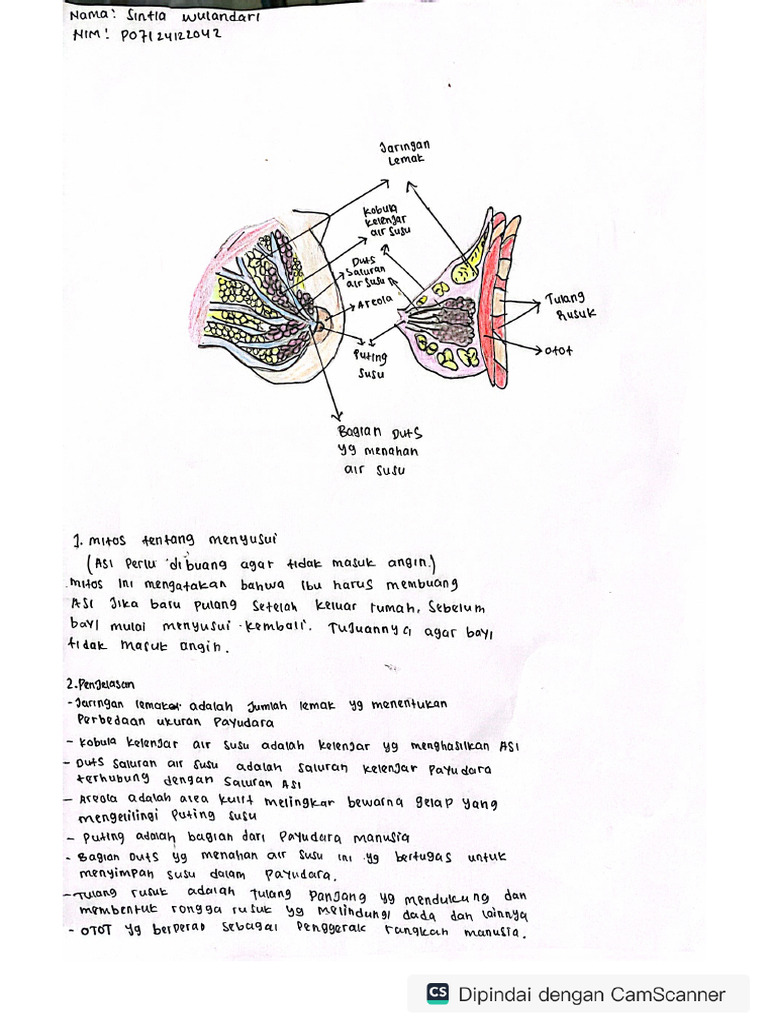 Nama: Sintia Wulandari
NIM: P07124122042
Jaringan
Lemak
Kobula
Kelenjar
air susu
Duts
Saluran
air susu
Areola
Puting
susu
Tulang
Rusuk
otot
Bagian Duts
yg menahan
air susu
1. Mitos tentang menyusui
(ASI Perlu dibuang agar tidak masuk angin.)
Mitos ini mengatakan bahwa Ibu harus membuang
ASI Jika baru pulang setelah keluar rumah, Sebelum
bayi mulai menyusui kembali. Tujuannya agar bayi
tidak masuk angin.
2. Penjelasan
- Jaringan lemak adalah Jumlah lemak yg menentukan
Perbedaan ukuran Payudara
- Kobula Kelenjar air susu adalah kelenjar yg menghasilkan ASI
- Duts Saluran air susu adalah saluran kelenjar Payudara
terhubung dengan Saluran ASI
- Areola adalah area kulit melingkar bewarna gelap yang
mengelilingi Puting susu
- Puting adalah bagian dari Payudara manusia
- Bagian Duts yg menahan air susu ini yg bertugas untuk
menyimpan susu dalam Payudara.
- Tulang rusuk adalah tulang Panjang yg mendukung dan
membentuk rongga rusuk yg Melindungi dada dan lainnya
- OTOT yg berperan sebagai Penggerak rangkah manusia.
CS Dipindai dengan CamScanner